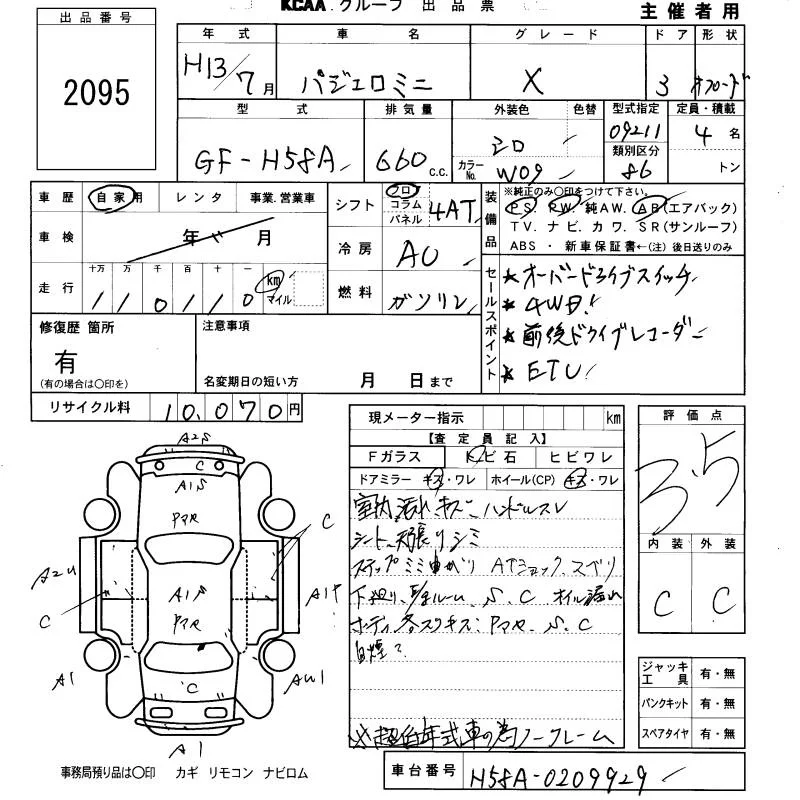 KCAA.グループ 出品票
主催者用
出品番号
2095
年式 車名 グレード ドア 形状
H13/7月 パジェロミニ X 3 オフロード
型式 排気量 外装色 色替 型式指定 定員・積載
GF-H58A 660 c.c. シロ 09211 4名
カラーNo. W09 類別区分 86 トン
車歴 自家用 レンタ 事業.営業車
車検 年 月
走行 十万 万 千 百 十 一
110110 km マイル
シフト フロ コラム パネル 4AT
冷房 AC
燃料 ガソリン
装備品
※純正のみ〇印をつけて下さい。
PS. PW. 純AW. AB(エアバック)
TV. ナビ. カワ. SR(サンルーフ)
ABS ・ 新車保証書←(注) 後日送りのみ
セールスポイント
★オーバードライブスイッチ
★4WD!
★前後ドライブレコーダー
★ETC!
修復歴 箇所
有
(有の場合は〇印を)
注意事項
名変期日の短い方 月 日まで
リサイクル料 10,070円
現メーター指示 km
【査定員記入】
Fガラス トビ石 ヒビワレ
ドアミラー キズ・ワレ ホイール(CP) キズ・ワレ
室内汚れキズ ハンドルスレ
シート、天張りシミ
ステップミミ曲がり ATショック、スベリ
下廻り、E/gルーム、S、C オイル漏れ
ボディ各スリキズ: P S、C
自煙?
※超低年式車の為ノークレーム
評価点
3.5
内装 外装
C C
ジャッキ工具 有・無
パンクキット 有・無
スペアタイヤ 有・無
A2S
C
A1S
C
A2U
A1S
A1T
C
A1
C
AW1
A1
事務局預り品は〇印 カギ リモコン ナビロム
車台番号 H58A-0209929